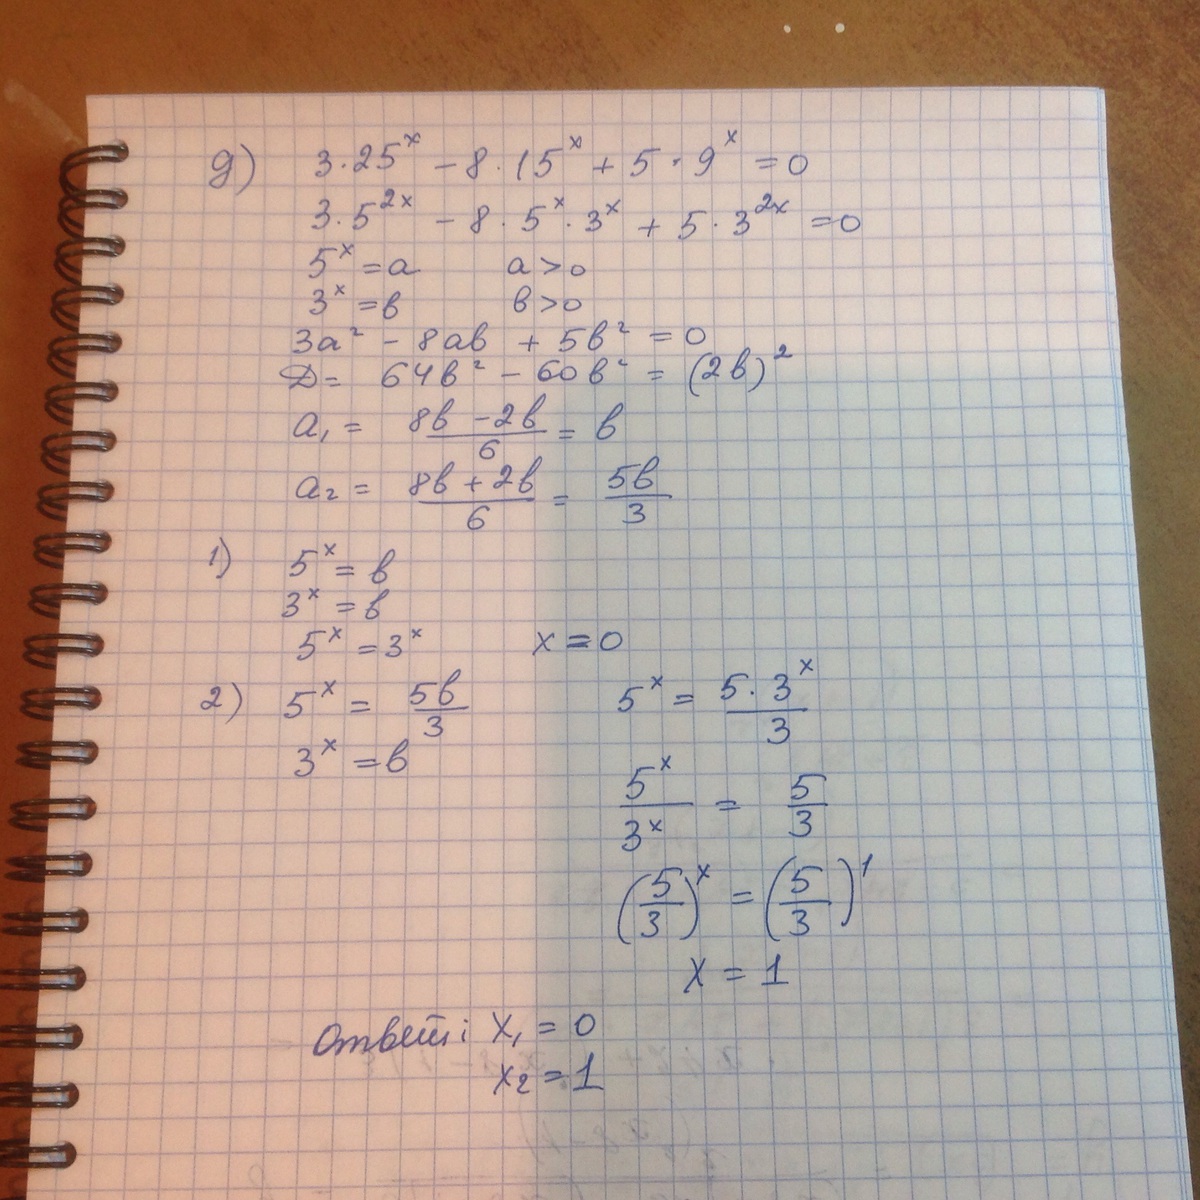 д) 3·25^x − 8·15^x + 5·9^x = 0
3·5^{2x} − 8·5^x·3^x + 5·3^{2x} = 0
5^x = a a > 0
3^x = в в > 0
3a² − 8aв + 5в² = 0
D = 64в² − 60в² = (2в)²
a₁ = (8в − 2в)/6 = в
a₂ = (8в + 2в)/6 = 5в/3
1) 5^x = в
3^x = в
5^x = 3^x x = 0
2) 5^x = 5в/3 5^x = (5·3^x)/3
3^x = в
5^x/3^x = 5/3
(5/3)^x = (5/3)^1
x = 1
Ответ: x₁ = 0
x₂ = 1